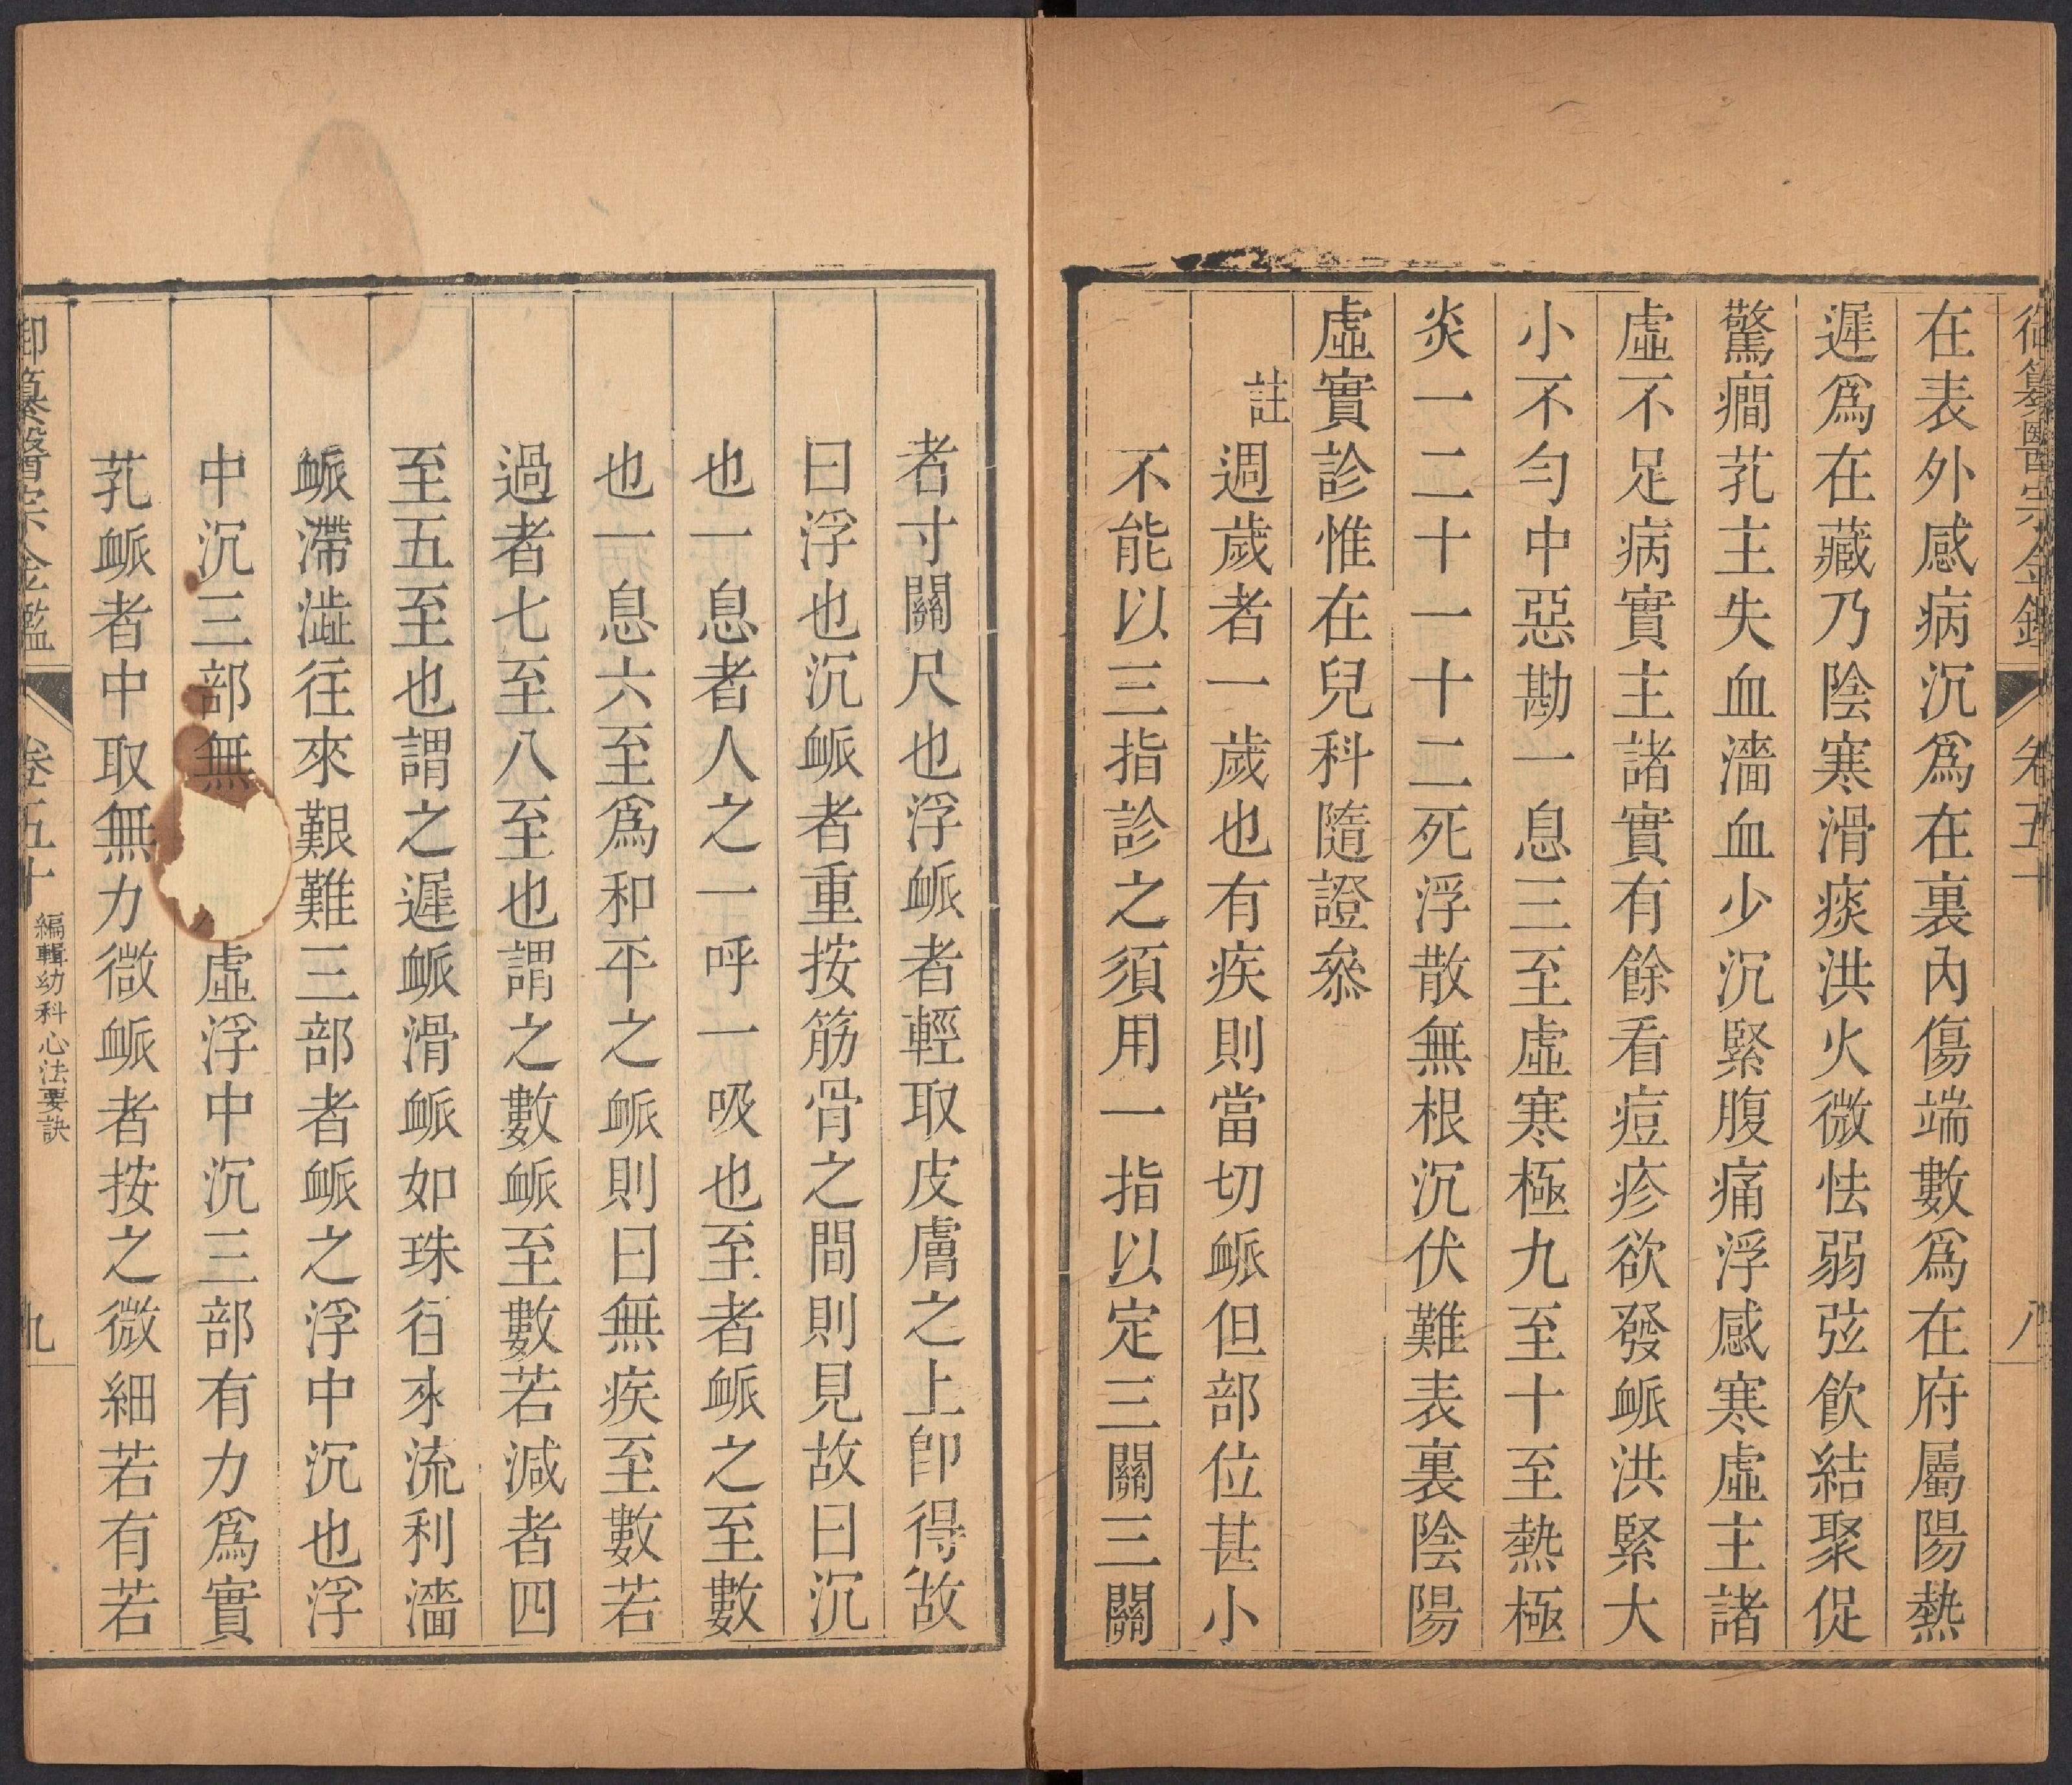 御纂醫宗金鑑 卷五十 八
在表外感病沉爲在裏內傷端數爲在府屬陽熱
遲爲在藏乃陰寒滑痰洪火微怯弱弦飲結聚促
驚癇芤主失血濇血少沉緊腹痛浮感寒虛主諸
虛不足病實主諸實有餘看痘疹欲發衇洪緊大
小不勻中惡勘一息三至虛寒極九至十至熱極
炎一二十一十二死浮散無根沉伏難表裏陰陽
虛實診惟在兒科隨證叅
註週歲者一歲也有疾則當切衇但部位甚小
不能以三指診之須用一指以定三關三關
者寸關尺也浮衇者輕取皮膚之上卽得故
曰浮也沉衇者重按筋骨之間則見故曰沉
也一息者人之一呼一吸也至者衇之至數
也一息六至爲和平之衇則曰無疾至數若
過者七至八至也謂之數衇至數若減者四
至五至也謂之遲衇滑衇如珠徃來流利濇
衇滯澁往來艱難三部者衇之浮中沉也浮
中沉三部無虛浮中沉三部有力爲實
芤衇者中取無力微衇者按之微細若有若
御纂醫宗金鑑 卷五十 編輯幼科心法要訣 九